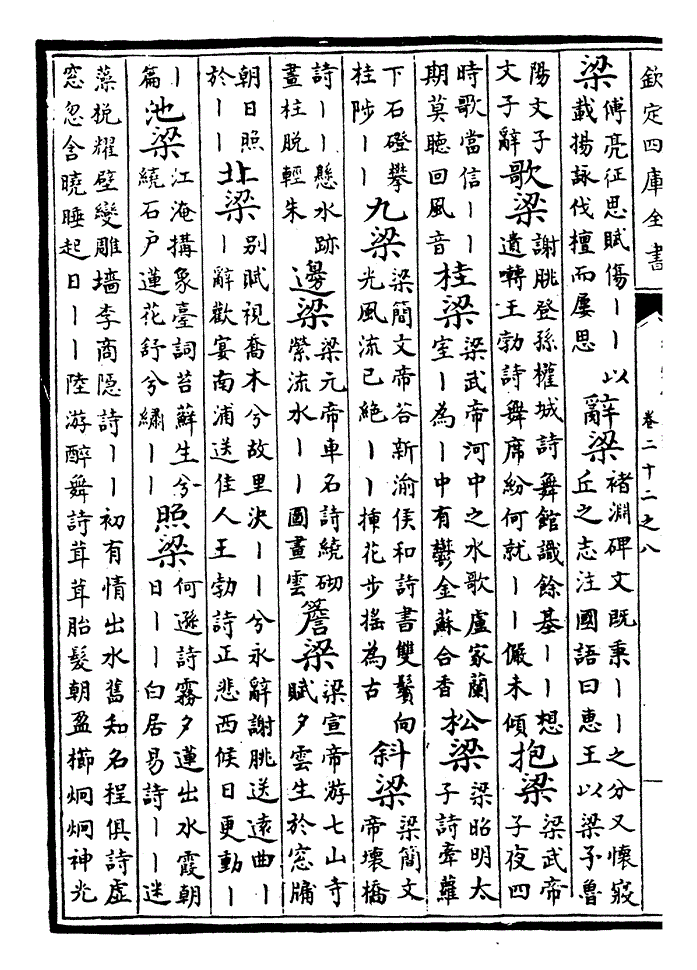 欽定四庫全書
卷二十二之八
梁
傅亮征思賦傷丨丨以
載揚詠伐檀而屢思
辭梁
褚淵碑文既秉丨丨之分又懷寂
丘之志注國語曰惠王以梁子魯
陽文子
文子辭
歌梁
謝朓登孫權城詩舞館識餘基丨丨想
遺囀王勃詩舞席紛何就丨丨儼未傾
抱梁
梁武帝
子夜四
時歌當信丨丨
期莫聽回風音
桂梁
梁武帝河中之水歌盧家蘭
室丨為丨中有鬱金蘇合香
松梁
梁昭明太
子詩牽蘿
下石磴攀
桂陟丨丨
九梁
梁簡文帝答新渝侯和詩書雙鬢向
光風流已絕丨丨揷花步搖為古
斜梁
梁簡文
帝壞橋
詩丨丨懸水跡
畫柱脫輕朱
邊梁
梁元帝車名詩繞砌
縈流水丨丨圖畫雲
簷梁
梁宣帝游七山寺
賦夕雲生於窓牖
朝日照
於丨丨
北梁
別賦視喬木兮故里決丨丨兮永辭謝朓送遠曲丨
丨辭歡宴南浦送佳人王勃詩正悲西候日更動丨
丨
篇
池梁
江淹搆象臺詞苔蘇生兮
繞石戶蓮花舒兮繡丨丨
照梁
何遜詩霧夕蓮出水霞朝
日丨丨白居易詩丨丨迷
藻棁耀璧變雕墻李商隠詩丨丨初有情出水舊知名程俱詩虛
窓忽含曉睡起日丨丨陸游醉舞詩茸茸胎髮朝盈櫛炯炯神光